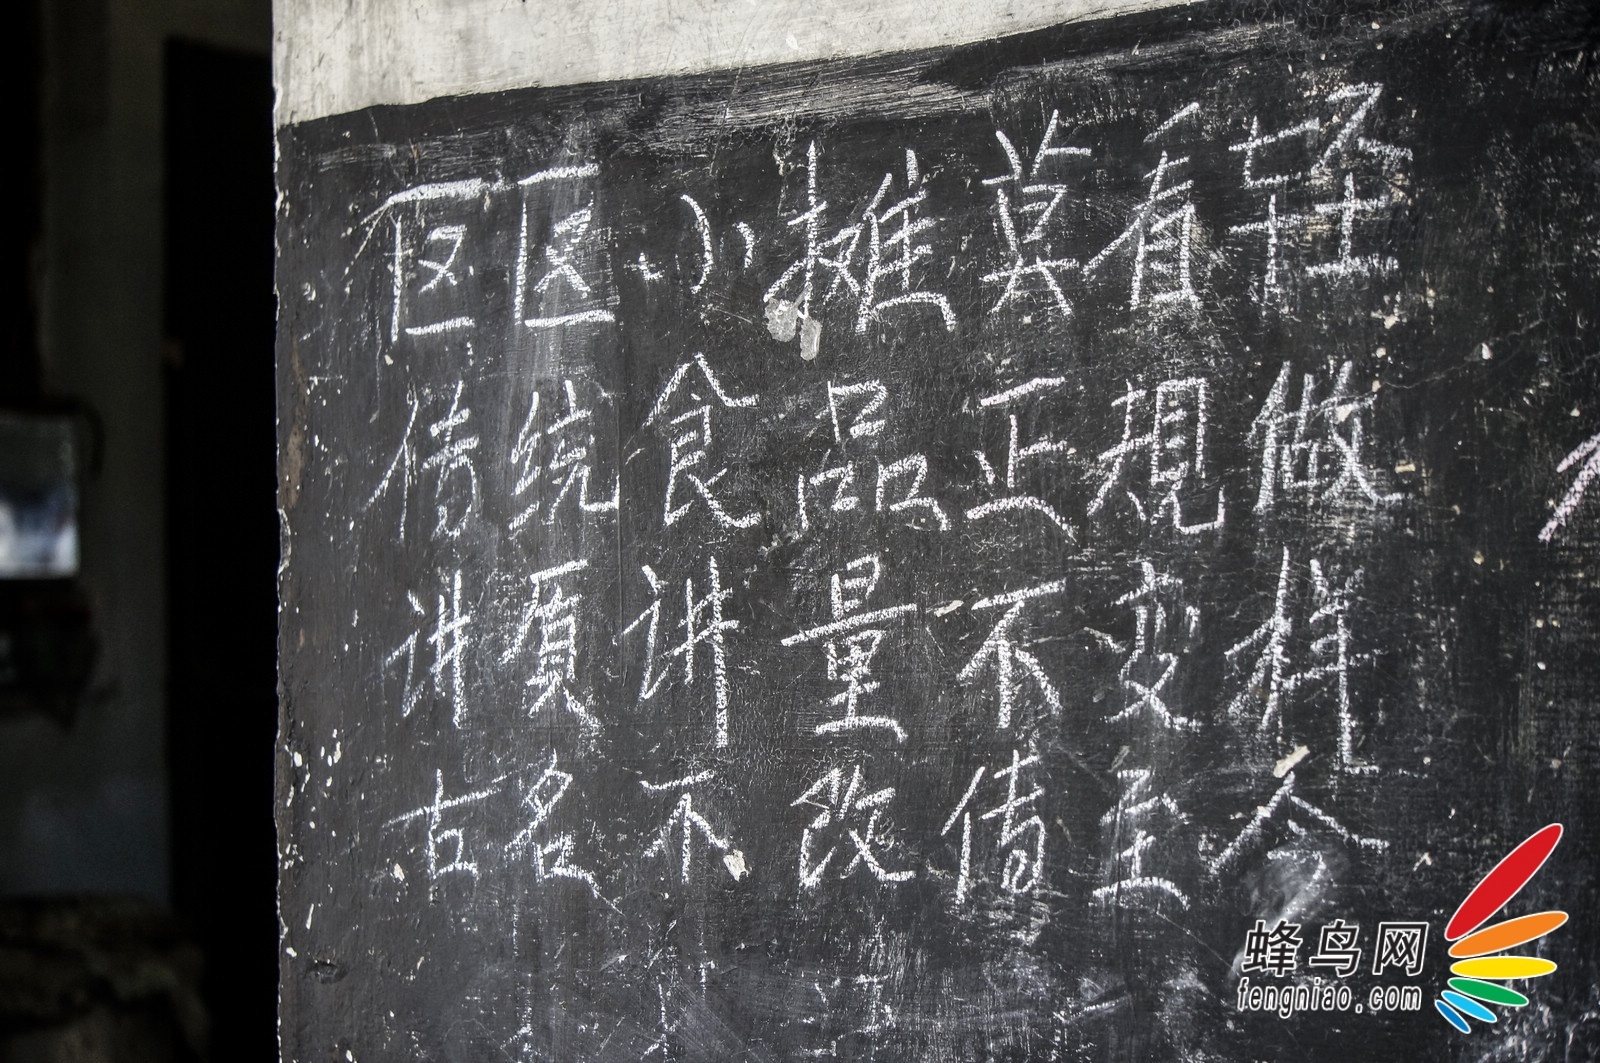 区区小摊莫看轻
传统食品正规做
讲质讲量不变样
古名不改传至今
蜂鸟网
fengniao.com